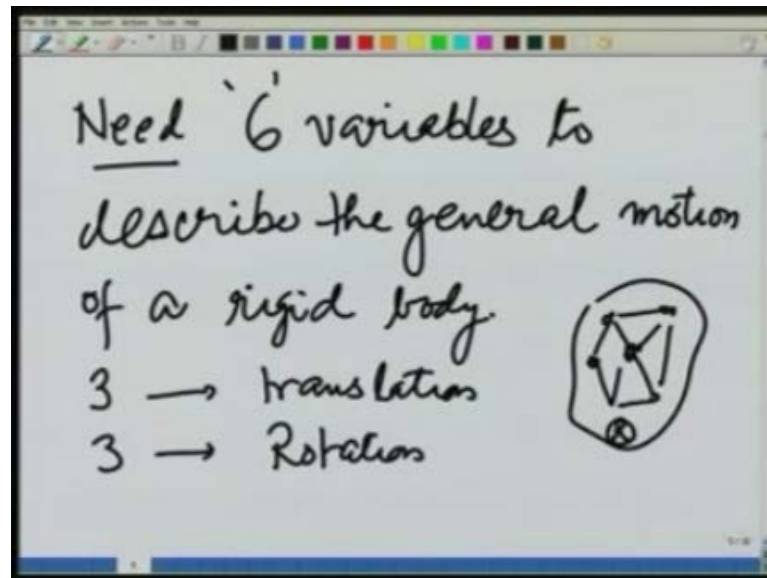 Need '6' variables to
describe the general motion
of a rigid body.
3 → translation
3 → Rotation